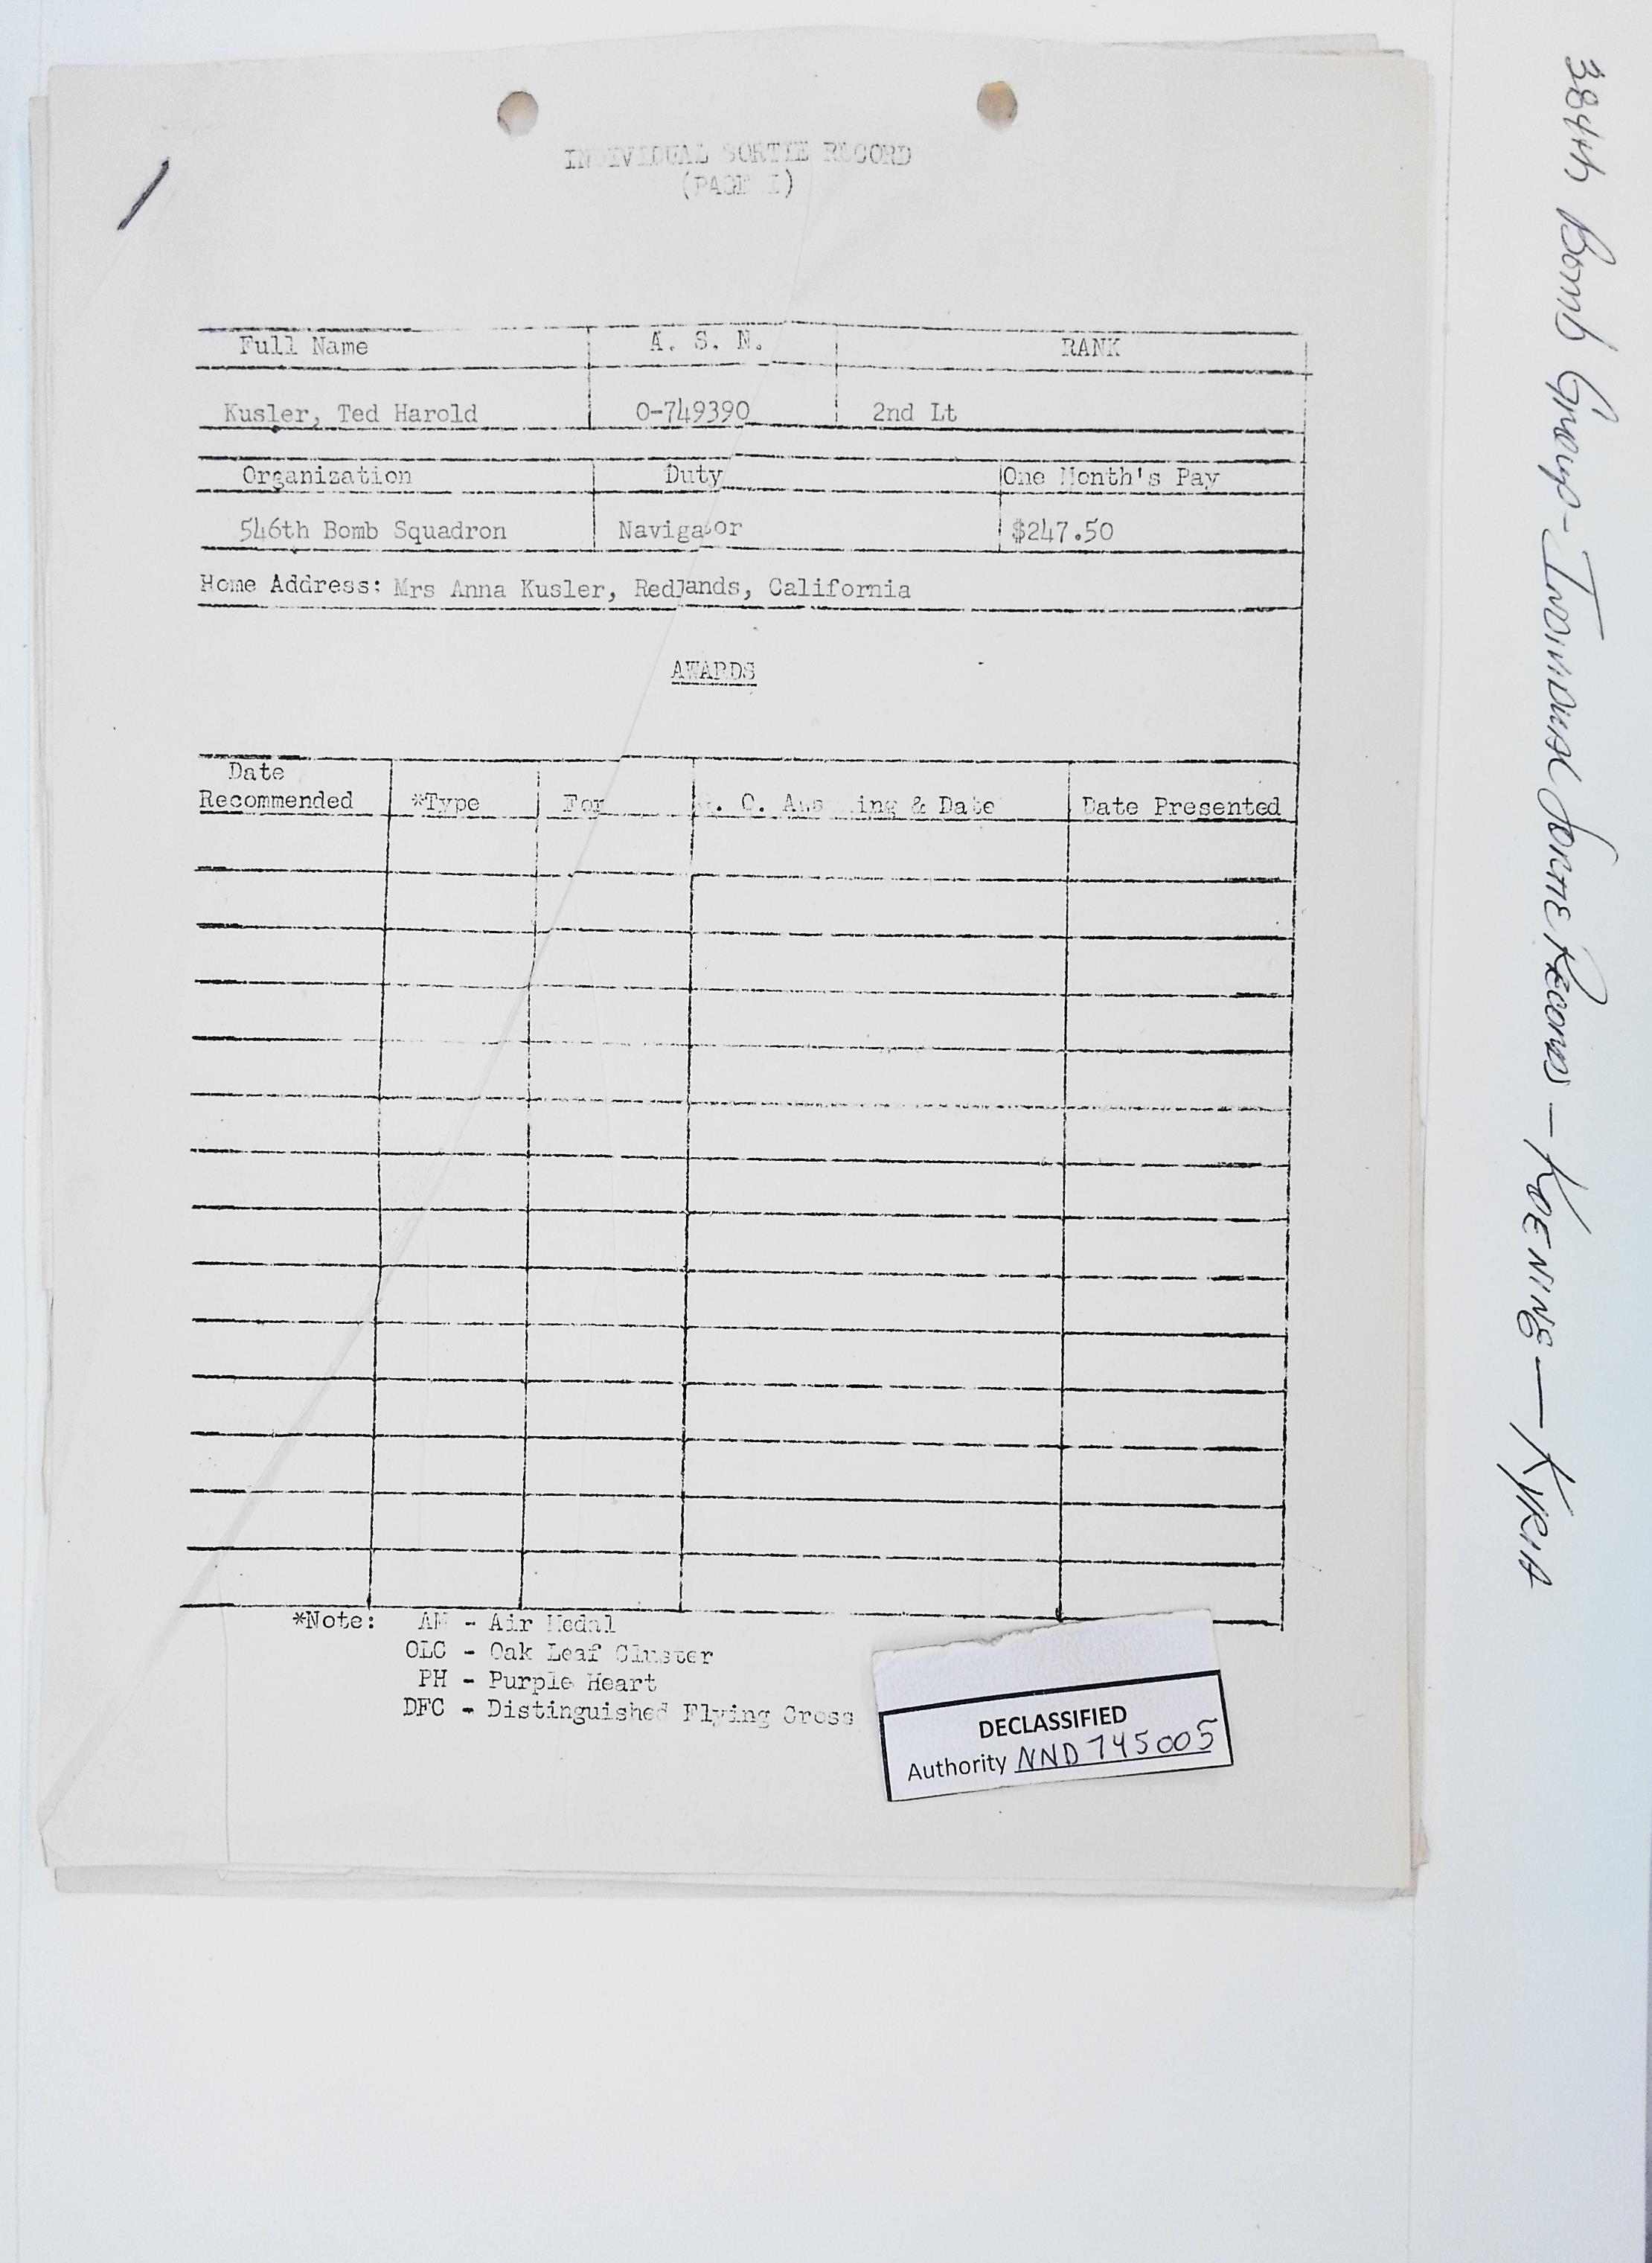 INDIVIDUAL SORTIE RECORD
(PAGE I)
Full Name A. S. N. RANK
Kusler, Ted Harold 0-749390 2nd Lt
Organization Duty One Month's Pay
546th Bomb Squadron Navigator $247.50
Home Address: Mrs Anna Kusler, Redlands, California
AWARDS
Date
Recommended *Type For G. O. Awarding & Date Date Presented
*Note: AM - Air Medal
OLC - Oak Leaf Cluster
PH - Purple Heart
DFC - Distinguished Flying Cross
DECLASSIFIED
Authority NND 745005
384th Bomb Group - Individual Sortie Records - KOENING - KYRIA